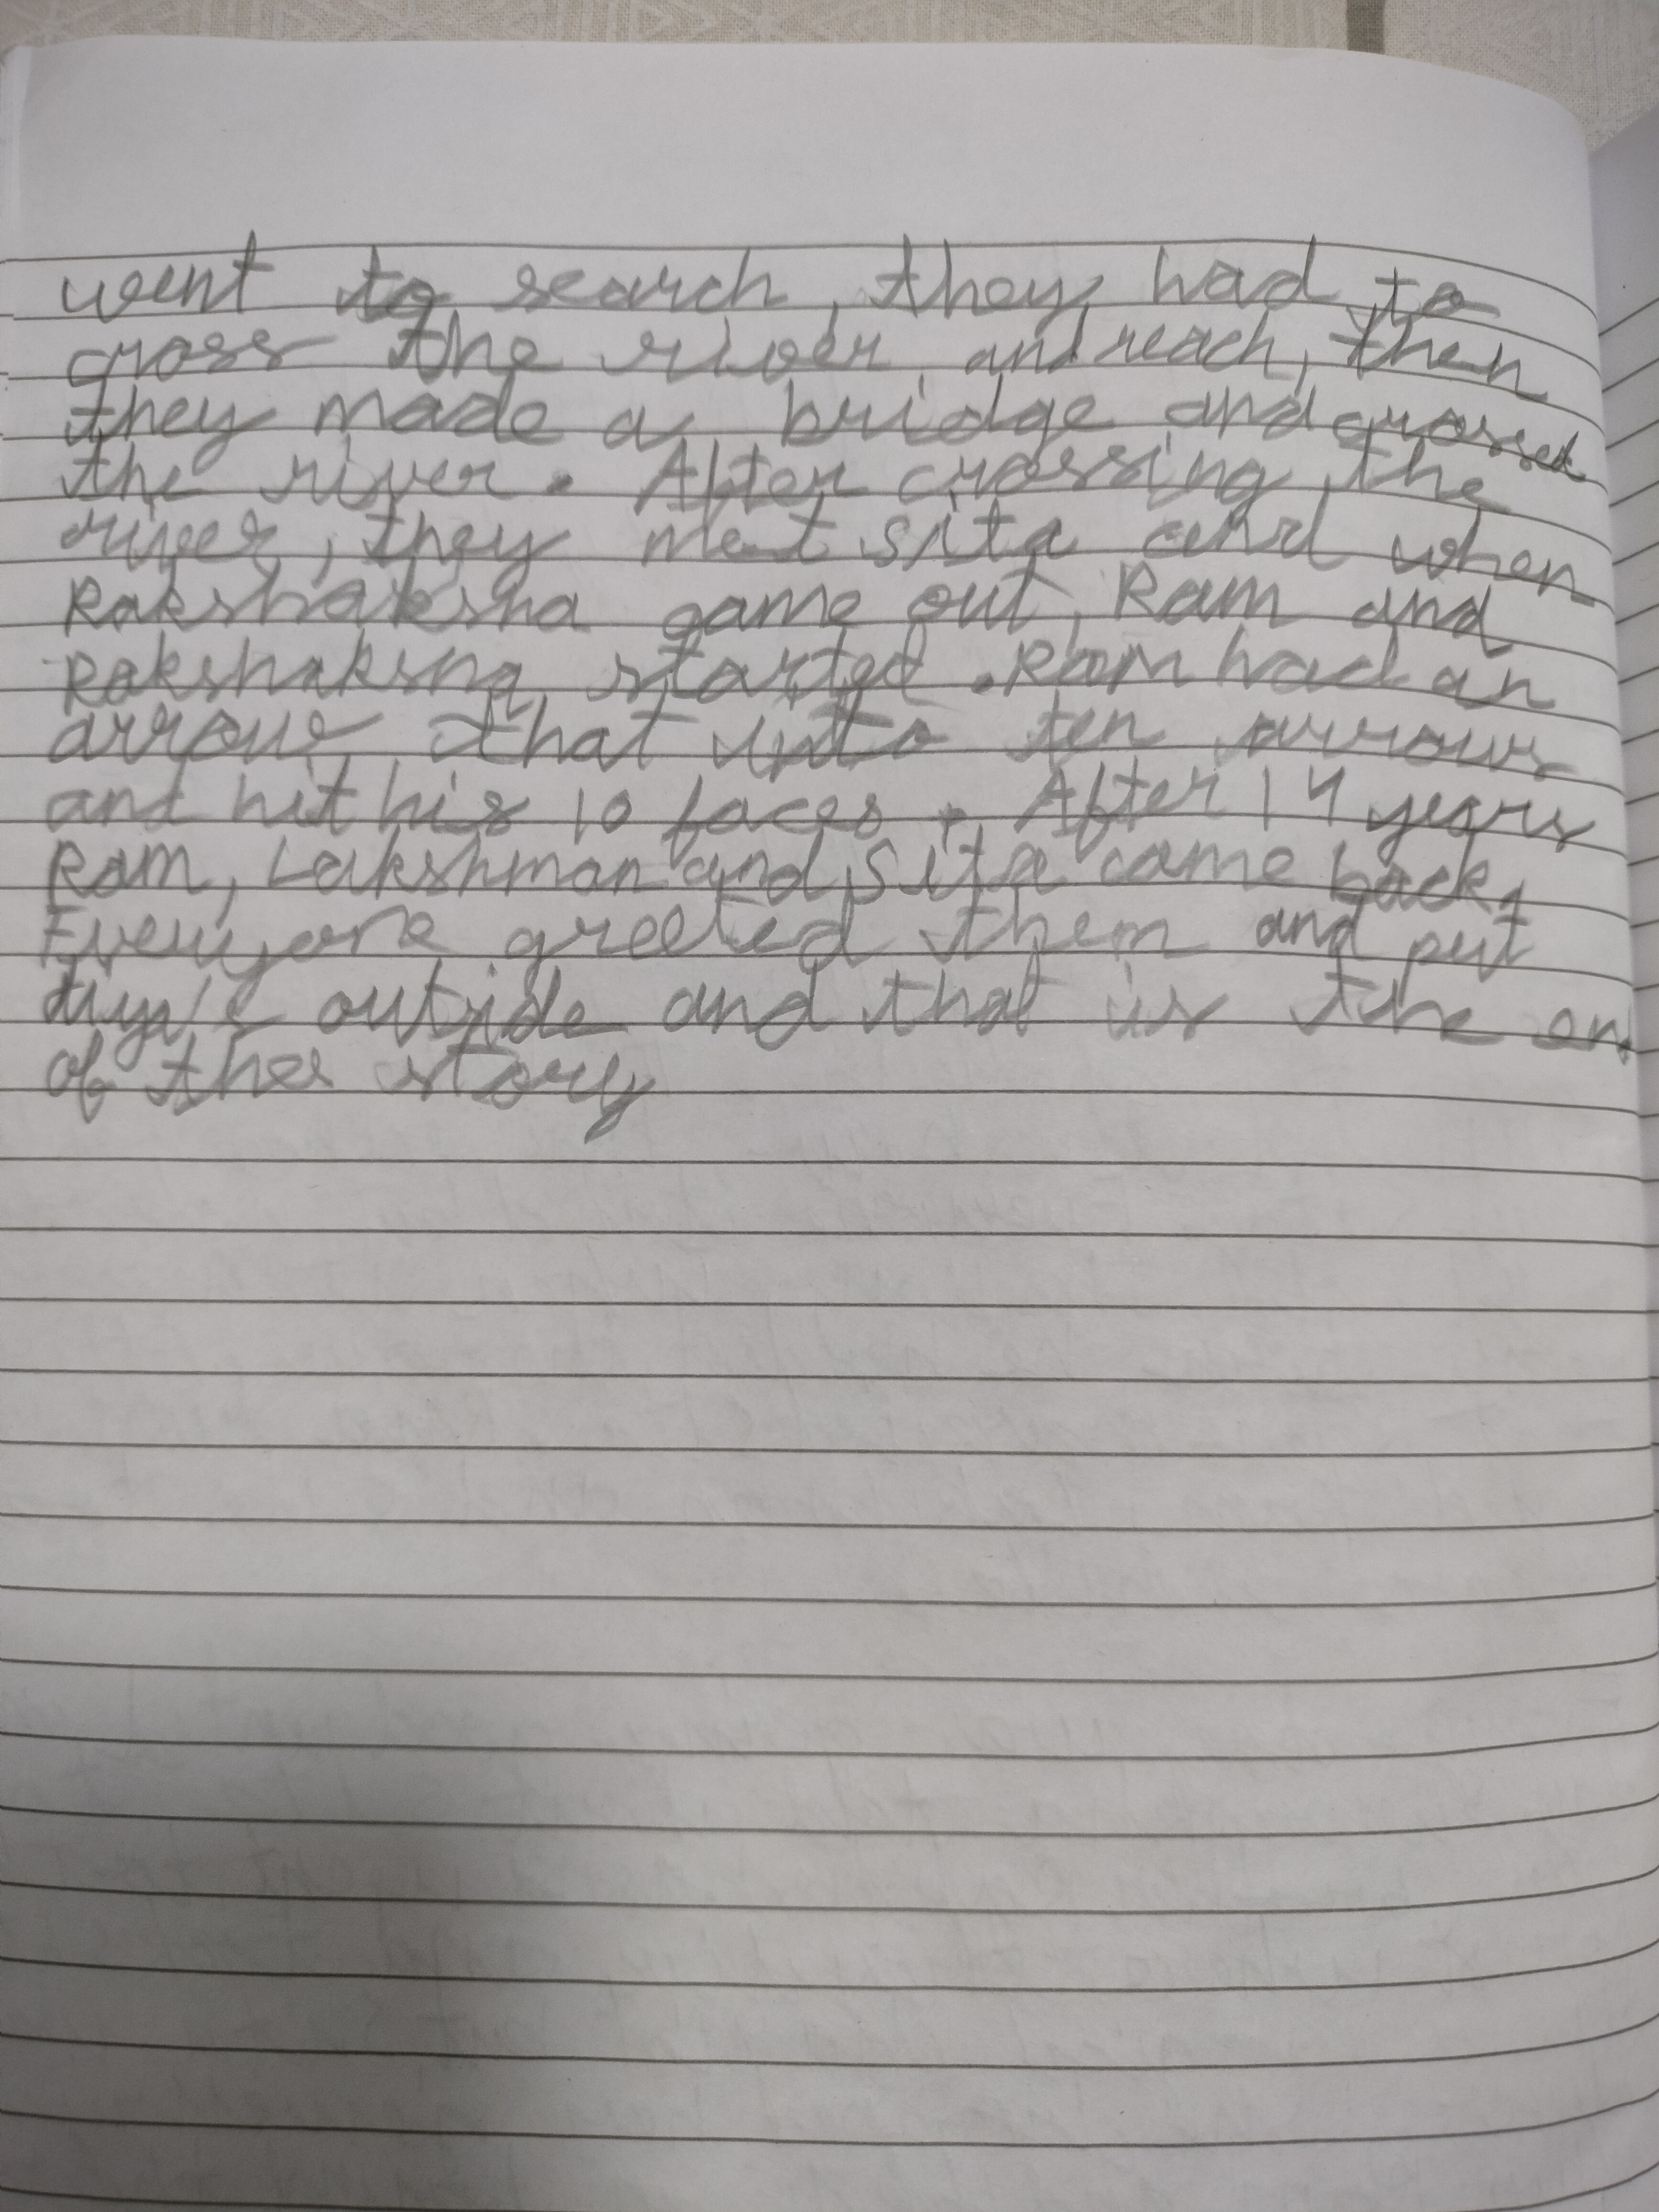 went to search, they had to
cross the river and reach, then
they made a bridge and crossed
the river. After crossing the
river, they meet sita and when
Rakshaksha came out, Ram and
Rakshaksha started. Ram had an
arrow that into ten arrows
and hit his 10 faces. After 14 years
Ram, Lakshman and Sita came back,
Everyone greeted them and put
diya's outside and that is the en
of thes story